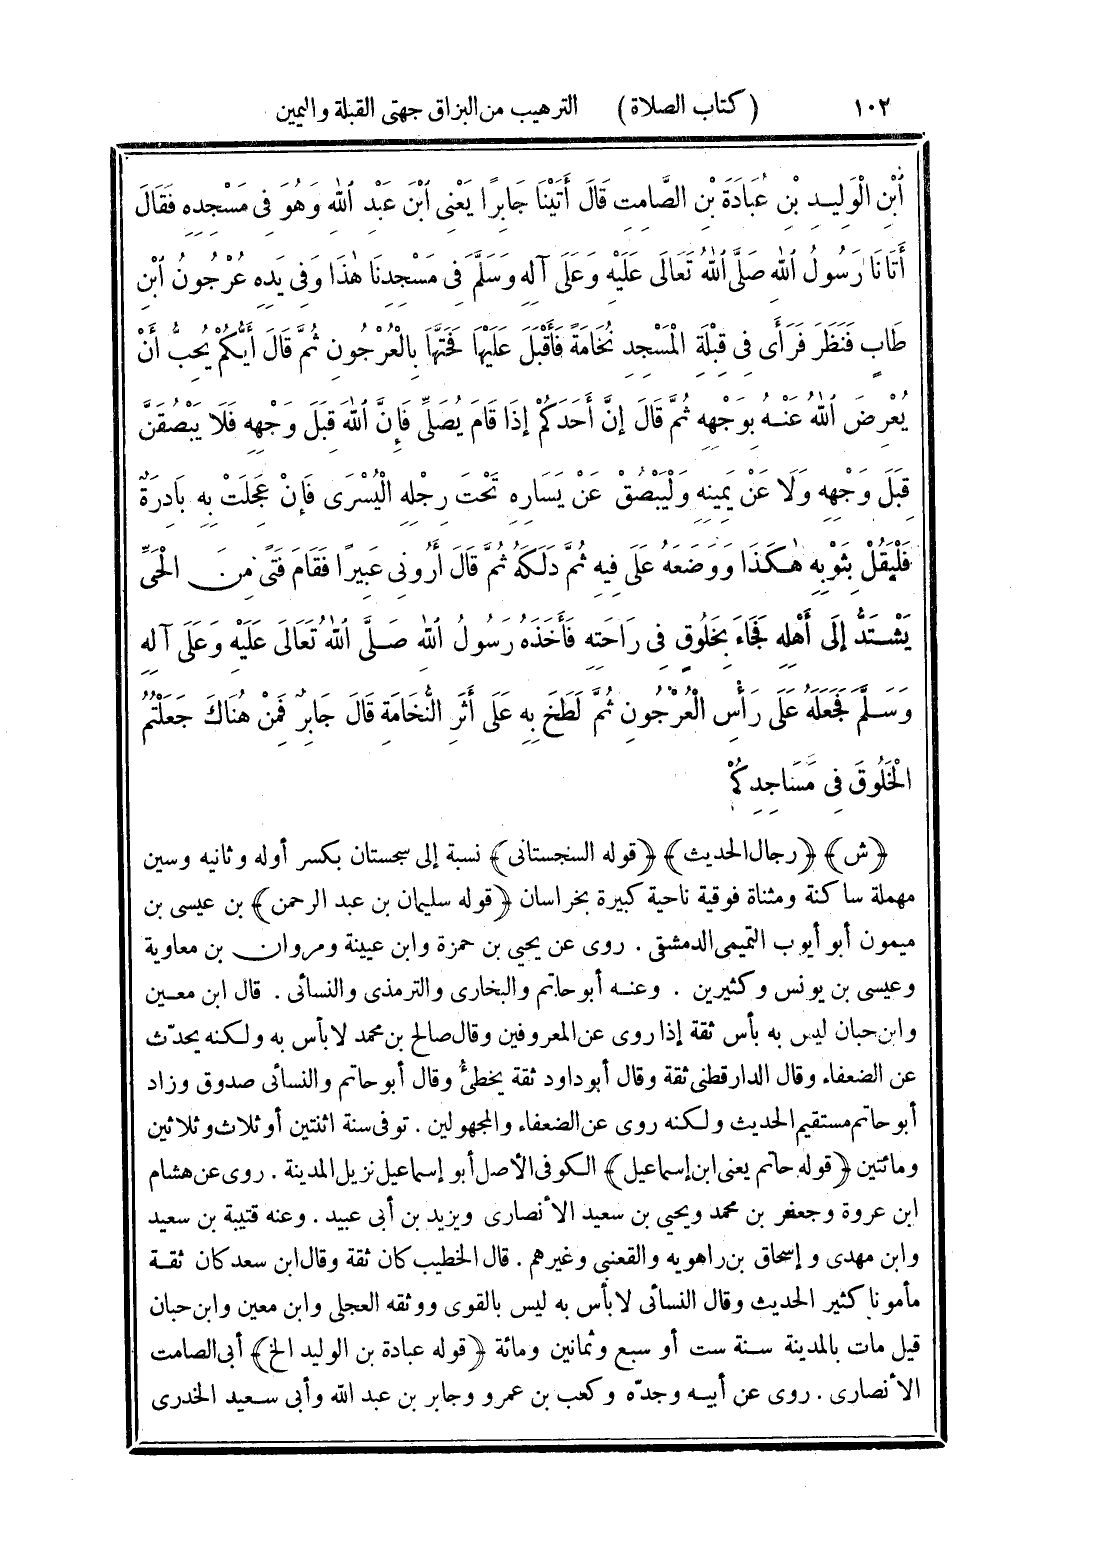 ١٠٢ (كتاب الصلاة) الترهيب من البزاق جهتى القبلة واليمين
ٱبْنِ الْوَلِيدِ بْنِ عُبَادَةَ بْنِ الصَّامِتِ قَالَ أَتَيْنَا جَابِرًا يَعْنِى ٱبْنَ عَبْدِ ٱللهِ وَهُوَ فِى مَسْجِدِهِ فَقَالَ
أَتَانَا رَسُولُ ٱللهِ صَلَّى ٱللهُ تَعَالَى عَلَيْهِ وَعَلَى آلِهِ وَسَلَّمَ فِى مَسْجِدِنَا هٰذَا وَفِى يَدِهِ عُرْجُونُ ٱبْنِ
طَابٍ فَنَظَرَ فَرَأَى فِى قِبْلَةِ الْمَسْجِدِ نُخَامَةً فَأَقْبَلَ عَلَيْهَا فَحَتَّهَا بِالْعُرْجُونِ ثُمَّ قَالَ أَيُّكُمْ يُحِبُّ أَنْ
يُعْرِضَ ٱللهُ عَنْهُ بِوَجْهِهِ ثُمَّ قَالَ إِنَّ أَحَدَكُمْ إِذَا قَامَ يُصَلِّى فَإِنَّ ٱللهَ قِبَلَ وَجْهِهِ فَلَا يَبْصُقَنَّ
قِبَلَ وَجْهِهِ وَلَا عَنْ يَمِينِهِ وَلْيَبْصُقْ عَنْ يَسَارِهِ تَحْتَ رِجْلِهِ الْيُسْرَى فَإِنْ عَجِلَتْ بِهِ بَادِرَةٌ
فَلْيَقُلْ بِثَوْبِهِ هٰكَذَا وَوَضَعَهُ عَلَى فِيهِ ثُمَّ دَلَكَهُ ثُمَّ قَالَ أَرُونِى عَبِيرًا فَقَامَ فَتًى مِنَ الْحَىِّ
يَشْتَدُّ إِلَى أَهْلِهِ فَجَاءَ بِخَلُوقٍ فِى رَاحَتِهِ فَأَخَذَهُ رَسُولُ ٱللهِ صَلَّى ٱللهُ تَعَالَى عَلَيْهِ وَعَلَى آلِهِ
وَسَلَّمَ فَجَعَلَهُ عَلَى رَأْسِ الْعُرْجُونِ ثُمَّ لَطَخَ بِهِ عَلَى أَثَرِ النُّخَامَةِ قَالَ جَابِرٌ فَمِنْ هُنَاكَ جَعَلْتُمُ
الْخَلُوقَ فِى مَسَاجِدِكُمْ
﴿ش﴾ ﴿رجال الحديث﴾ ﴿قوله السنجستانى﴾ نسبة إلى سجستان بكسر أوله وثانيه وسين
مهملة ساكنة ومثناة فوقية ناحية كبيرة بخراسان ﴿قوله سليمان بن عبد الرحمن﴾ بن عيسى بن
ميمون أبو أيوب التميمى الدمشقى . روى عن يحيى بن حمزة وابن عيينة ومروان بن معاوية
وعيسى بن يونس وكثيرين . وعنه أبو حاتم والبخارى والترمذى والنسائى . قال ابن معين
وابن حبان ليس به بأس ثقة إذا روى عن المعروفين وقال صالح بن محمد لا بأس به ولكنه يحدّث
عن الضعفاء وقال الدارقطنى ثقة وقال أبو داود ثقة يخطئ وقال أبو حاتم والنسائى صدوق وزاد
أبو حاتم مستقيم الحديث ولكنه روى عن الضعفاء والمجهولين . توفى سنة اثنتين أو ثلاث وثلاثين
ومائتين ﴿قوله حاتم يعنى ابن إسماعيل﴾ الكوفى الأصل أبو إسماعيل نزيل المدينة . روى عن هشام
ابن عروة وجعفر بن محمد ويحيى بن سعيد الأنصارى ويزيد بن أبى عبيد . وعنه قتيبة بن سعيد
وابن مهدى وإسحاق بن راهويه والقعنبى وغيرهم . قال الخطيب كان ثقة وقال ابن سعد كان ثقة
مأمونا كثير الحديث وقال النسائى لا بأس به ليس بالقوى ووثقه العجلى وابن معين وابن حبان
قيل مات بالمدينة سنة ست أو سبع وثمانين ومائة ﴿قوله عبادة بن الوليد الخ﴾ أبى الصامت
الأنصارى . روى عن أبيه وجدّه وكعب بن عمرو وجابر بن عبد الله وأبى سعيد الخدرى